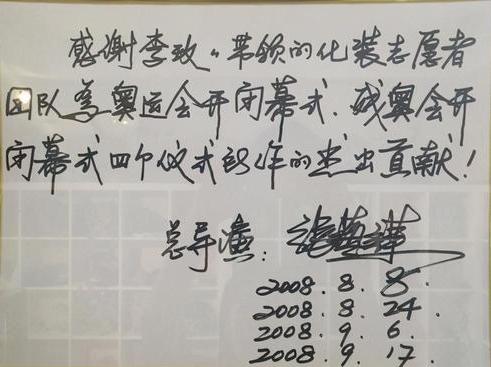 感谢李玫·带领的化装志愿者
团队为奥运会开闭幕式、残奥会开
闭幕式四个仪式所作的杰出贡献！
总导演：张艺谋
2008.8.8.
2008.8.24.
2008.9.6.
2008.9.17.